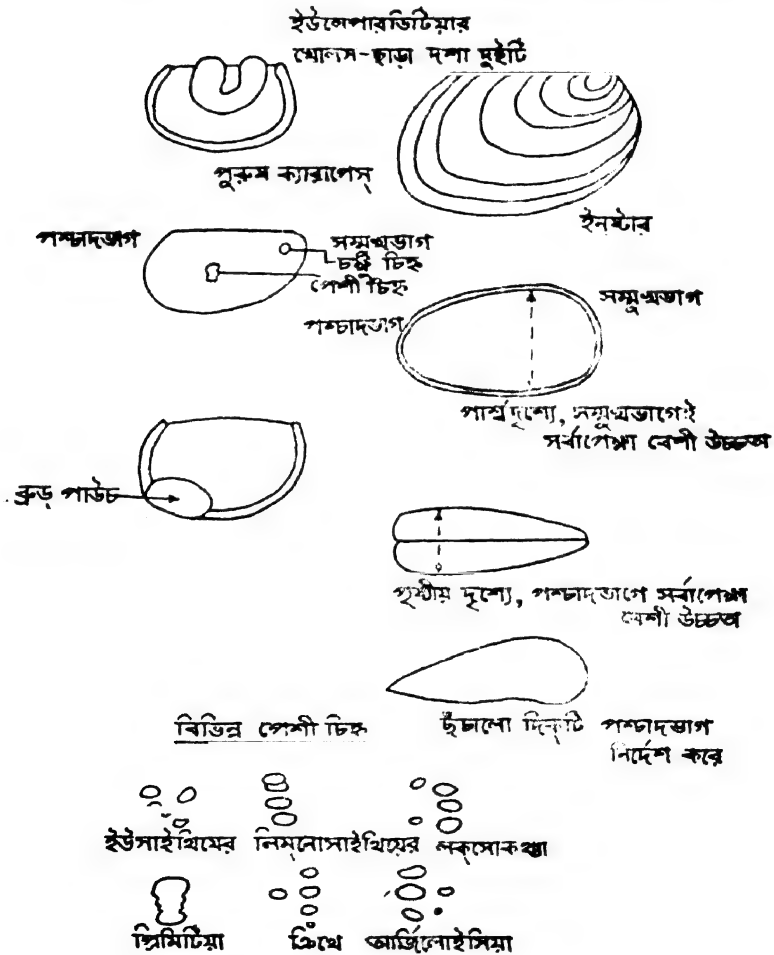 ইউলেপারডিটিয়ার
খোলস-ছাড়া দশা দুইটি
পুরুষ ক্যারাপেস্
ইনষ্টার
পশ্চাদভাগ
সম্মুখভাগ
চক্ষু চিহ্ন
পেশী চিহ্ন
সম্মুখভাগ
পশ্চাদভাগ
পার্শ্বদৃশ্যে, সম্মুখভাগেই
সর্বাপেক্ষা বেশী উচ্চতা
ব্রুড্ পাউচ
পৃষ্ঠীয় দৃশ্যে, পশ্চাদভাগে সর্বাপেক্ষা
বেশী উচ্চতা
বিভিন্ন পেশী চিহ্ন
ছুঁচালো দিক্‌টি পশ্চাদভাগ
নির্দেশ করে
ইউসাইথিয়ের লিম্‌নোসাইথিয়ের লক্‌সোকঙ্খা
প্রিমিটিয়া ক্রিথে আর্জিলোইসিয়া